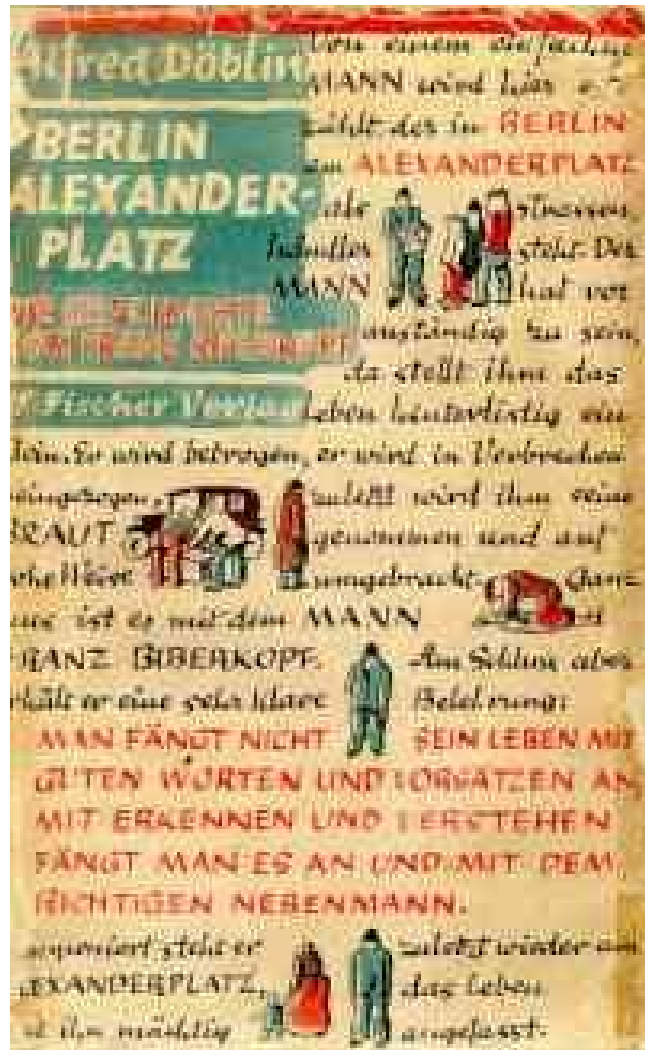 Alfred Döblin
BERLIN
ALEXANDER-
PLATZ
Fischer Verlag
Von einem einfachen
MANN wird hier er-
zählt, der in BERLIN
am ALEXANDERPLATZ
als strassen-
händler steht. Der
MANN hat vor
anständig zu sein,
da stellt ihm das
leben hinterlistig ein
bein. Er wird betrogen, er wird in Verbrechen
eingezogen, zuletzt wird ihm seine
BRAUT genommen und auf
rohe Weise umgebracht. Ganz
aus ist es mit dem MANN
FRANZ BIBERKOPF. Am Schluss aber
erhält er eine sehr klare Belehrung:
MAN FÄNGT NICHT SEIN LEBEN MIT
GUTEN WORTEN UND VORSÄTZEN AN,
MIT ERKENNEN UND VERSTEHEN
FÄNGT MAN ES AN UND MIT DEM
RICHTIGEN NEBENMANN.
steht er zuletzt wieder am
ALEXANDERPLATZ, das leben
ihn mächtig angefasst.